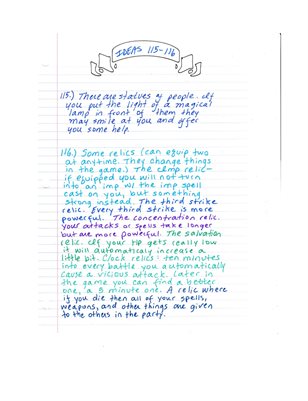 IDEAS 115-116
115.) There are statues of people. If
you put the light of a magical
lamp in front of them they
may smile at you and offer
you some help.
116.) Some relics (can equip two
at anytime. They change things
in the game.) The imp relic-
if equipped you will not turn
into an imp w/ the imp spell
cast on you, but something
strong instead. The third strike
relic. Every third strike is more
powerful. The concentration relic.
Your attacks or spells take longer
but are more powerful. The salvation
relic. If your HP gets really low
it will automaticly increase a
little bit. Clock relics: ten minutes
into every battle you automatically
cause a vicious attack. Later in
the game you can find a better
one, a 3 minute one. A relic where
if you die then all of your spells,
weapons, and other things are given
to the others in the party.